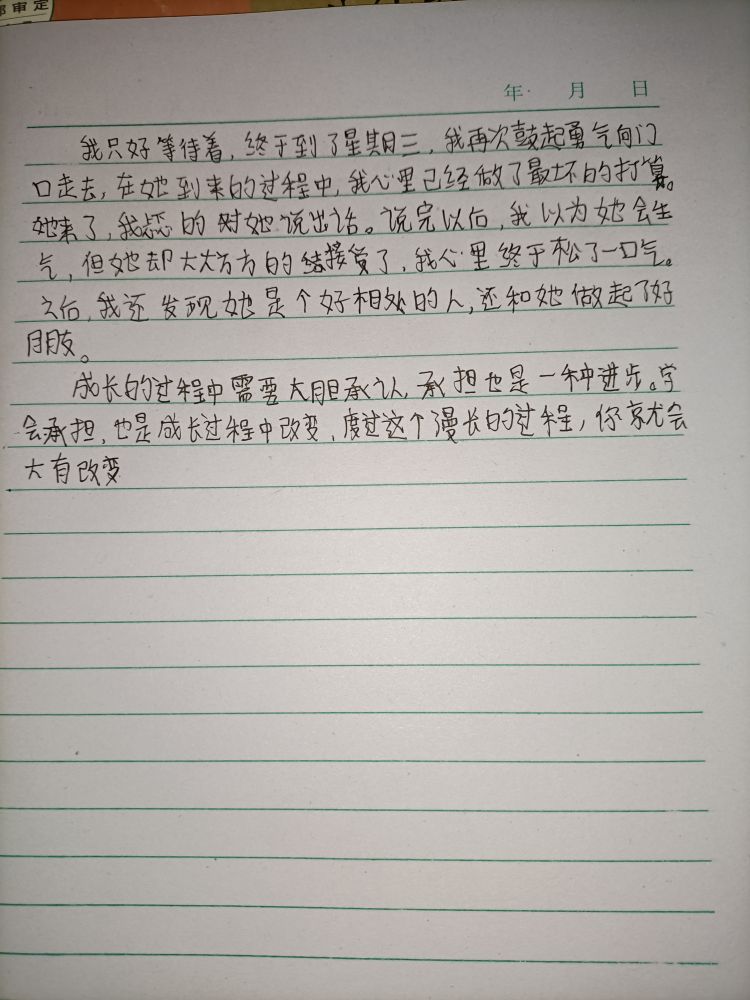 部审定
年 月 日
我只好等待着，终于到了星期三，我再次鼓起勇气向门
口走去，在她到来的过程中，我心里已经做了最坏的打算。
她来了，我 的对她说出话。说完以后，我以为她会生
气，但她却大大方方的接受了，我心里终于松了一口气。
之后，我还发现她是个好相处的人，还和她做起了好
朋友。
成长的过程中需要大胆承认，承担也是一种进步。学
会承担，也是成长过程中改变，度过这个漫长的过程，你就会
大有改变